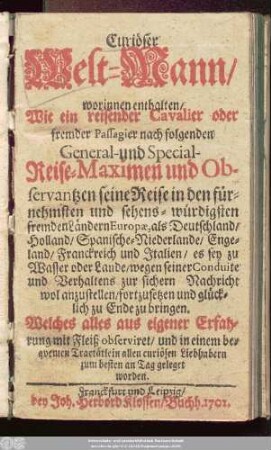 Curiöser
Welt=Mann/
worinnen enthalten/
Wie ein reisender Cavalier oder
fremder Passagier nach folgenden
General-und Special-
Reise-Maximen und Ob-
servantzen seine Reise in den für-
nehmsten und sehens-würdigsten
fremden Ländern Europæ, als Deutschland/
Holland/ Spanische-Niederlande/ Enge-
land/ Franckreich und Italien/ es sey zu
Wasser oder Lande/ wegen seiner Conduite
und Verhaltens zur sichern Nachricht
wol anzustellen/ fortzusetzen und glück-
lich zu Ende zu bringen.
Welches alles aus eigener Erfah-
rung mit Fleiß observiret/ und in einem be-
quemen Tractätlein allen curiösen Liebhabern
zum besten an Tag geleget
worden.
Franckfurt und Leipzig/
bey Joh. Herbord Klossen/ Buchh. 1701.